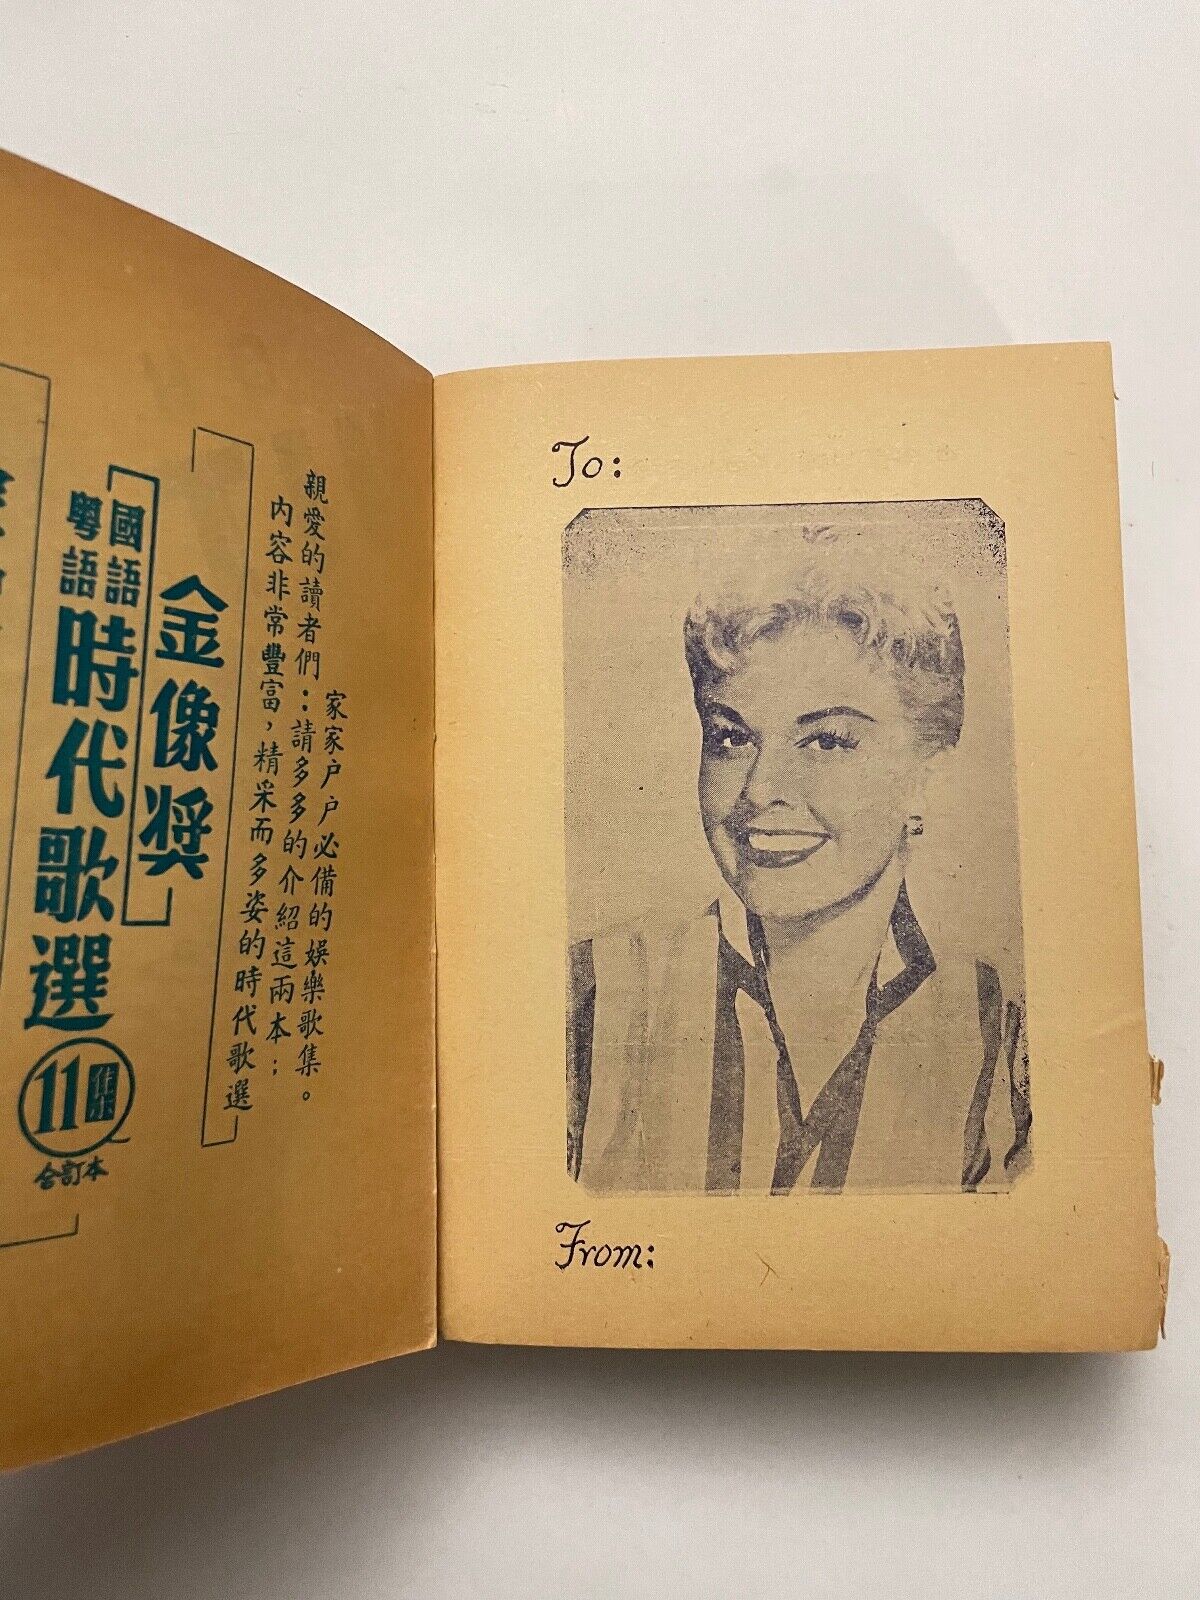 家家户户必備的娛樂歌集。
親愛的讀者們：請多多的介紹這兩本；
內容非常豐富，精采而多姿的時代歌選
金像奬
國語
粵語
時代歌選
11集
合訂本
To:
From: